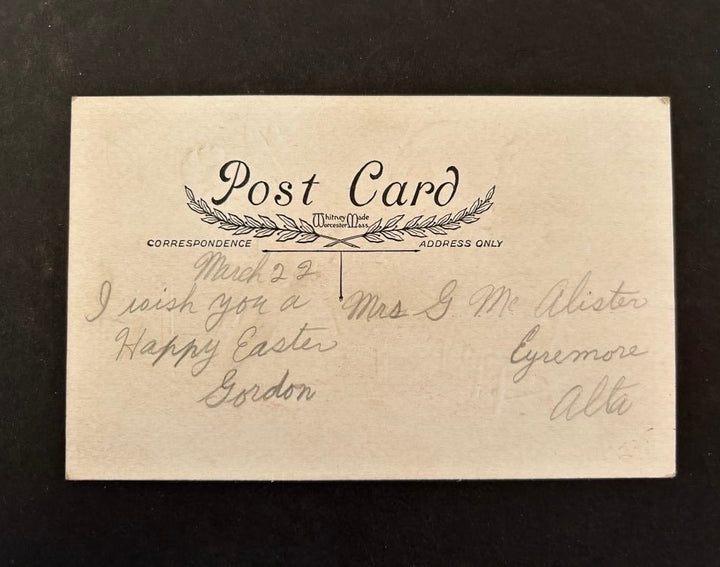 Post Card
Whitney Made
Worcester Mass
CORRESPONDENCE
ADDRESS ONLY
March 22
I wish you a
Happy Easter
Gordon
Mrs G. Mc Alister
Eyremore
Alta